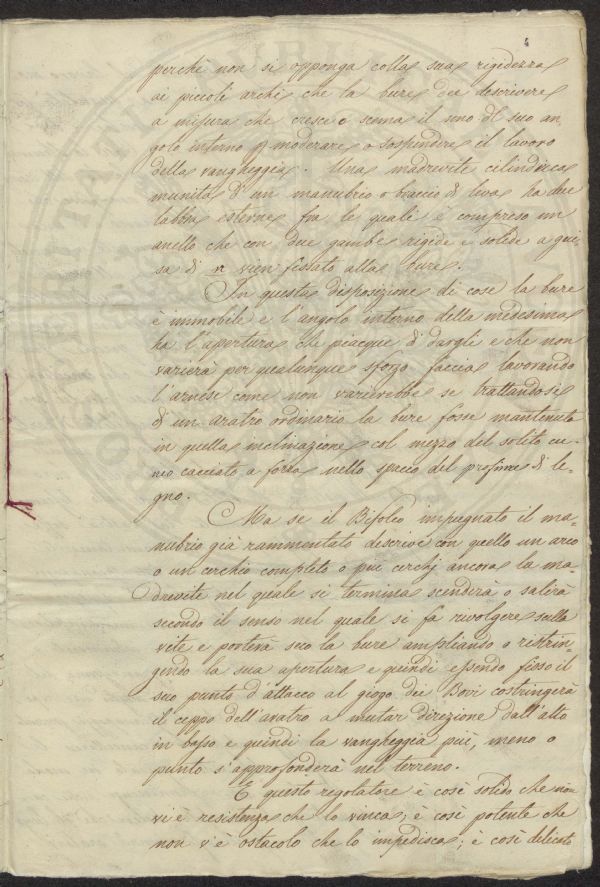 perchè non si opponga colla sua rigidezza
ai piccoli archi che la bure dee descrivere
a misura che cresce o scema il seno del suo an
golo interno p moderare o sospendere il lavoro
della vangheggia. Una madrevite cilindrica
munita d'un manubrio o braccio di leva ha due
labbra esterne fra le quali è compreso un
anello che con due gambe rigide e solide a gui,
sa di n vien fissato alla bure.
In questa disposizione di cose la bure
è immobile e l'angolo interno della medesima
ha l'apertura che piacque di dargli e che non
varierà per qualunque sforzo faccia lavorando
l'arnese come non varierebbe se trattandosi
di un aratro ordinario la bure fosse mantenuta
in quella inclinazione col mezzo del solito cu-
neo cacciato a forza nello spacco del profime di le-
gno.
Ma se il Bifolco impugnato il ma-
nubrio già rammentato descrive con quello un arco
o un cerchio completo o più cerchj ancora la ma
drevite nel quale si termina scenderà o salirà
secondo il senso nel quale si fa rivolgere sulla
vite e porterà seco la bure ampliando o ristrin-
gendo la sua apertura e quindi essendo fisso il
suo punto d'attacco al giogo dei Bovi costringerà
il ceppo dell'aratro a mutar direzione dall'alto
in basso e quindi la vangheggia più, meno o
punto s'approfonderà nel terreno.
E questo regolatore è così solido che non
vi è resistenza che lo vinca; è così potente che
non v'è ostacolo che lo impedisca; è così delicato